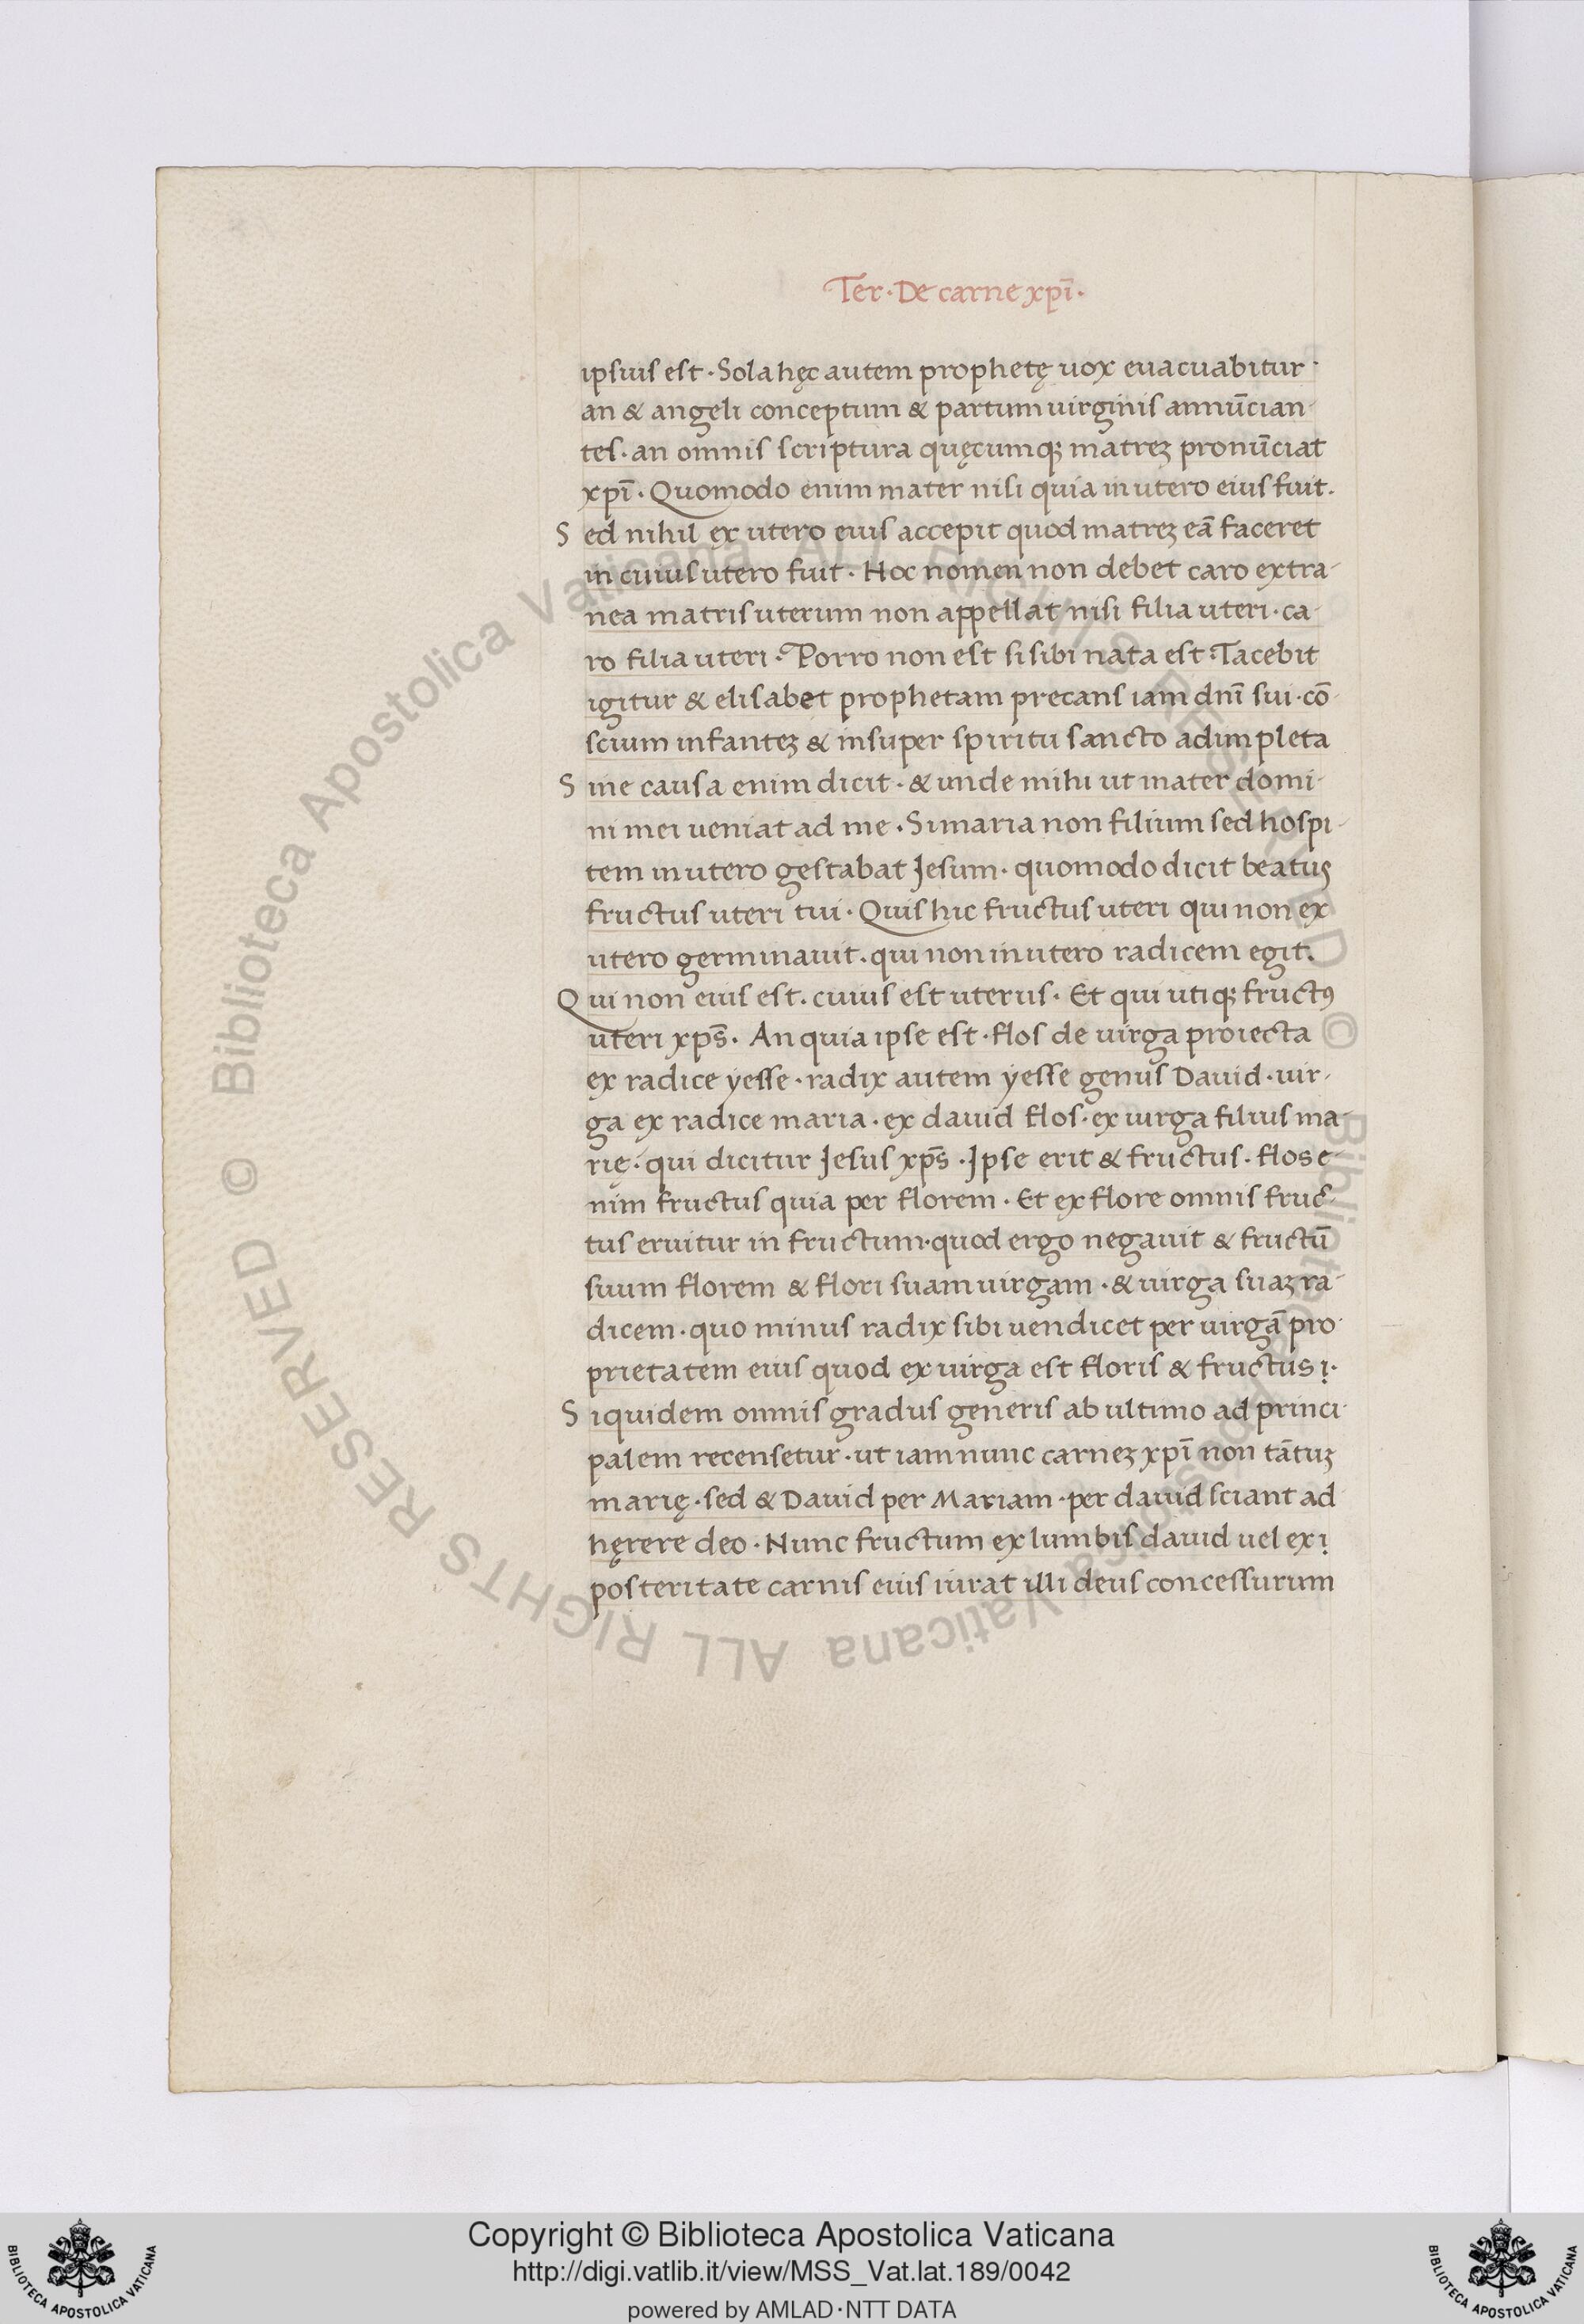 Ter · De carne xpī ·
ipsius est · Sola hęc autem prophetę uox euacuabitur ·
an & angeli conceptum & partum uirginis annūcian-
tes · an omnis scriptura quęcumqꝫ matreꝫ pronūciat
xpī · Quomodo enim mater nisi quia in utero eius fuit .
Sed nihil ex utero eius accepit quod matreꝫ eā faceret
in cuius utero fuit · Hoc nomen non debet caro extra-
nea matris uterum non appellat nisi filia uteri · ca-
ro filia uteri · Porro non est si sibi nata est · Tacebit
igitur & elisabet prophetam precans iam dnī sui · cō-
scium infanteꝫ & insuper spiritu sancto adimpleta
Sine causa enim dicit · & unde mihi ut mater domi-
ni mei ueniat ad me . Si maria non filium sed hospi-
tem in utero gestabat Jesum · quomodo dicit beatus
fructus uteri tui · Quis hic fructus uteri qui non ex
utero germinauit . qui non in utero radicem egit .
Qui non eius est . cuius est uterus . Et qui utiqꝫ fructꝰ
uteri xp̄s . An quia ipse est · flos de uirga proiecta
ex radice yesse · radix autem yesse genus Dauid · uir-
ga ex radice maria . ex dauid flos · ex uirga filius ma-
rię · qui dicitur Jesus xp̄s . Jpse erit & fructus . flos e-
nim fructus quia per florem . Et ex flore omnis fruc-
tus eruitur in fructum · quod ergo negauit & fructū
suum florem & flori suam uirgam · & uirga suaꝫ ra-
dicem · quo minus radix sibi uendicet per uirgā pro-
prietatem eius quod ex uirga est floris & fructus ị .
Siquidem omnis gradus generis ab ultimo ad princi-
palem recensetur . ut iam nunc carneꝫ xpī non tātuꝫ
marię · sed & Dauid per Mariam · per dauid sciant ad
hęrere deo · Nunc fructum ex lumbis dauid uel ex ị
posteritate carnis eius iurat illi deus concessurum
© Biblioteca Apostolica Vaticana ALL RIGHTS RESERVED
© Biblioteca Apostolica Vaticana ALL RIGHTS RESERVED
Copyright © Biblioteca Apostolica Vaticana
http://digi.vatlib.it/view/MSS_Vat.lat.189/0042
powered by AMLAD·NTT DATA
BIBLIOTECA APOSTOLICA VATICANA
BIBLIOTECA APOSTOLICA VATICANA